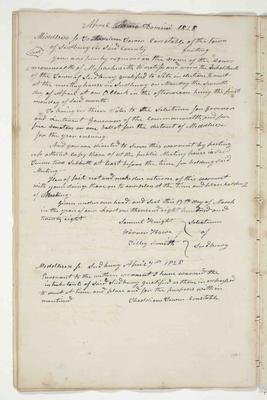 April Domini 1828
Middlesex ss To Constable of the Town
of Sudbury in Said County Greeting
you are hereby required in the name of the Commonwealth
of Massachusetts to notify and warn the Inhabitants
of the Town of Sudbury qualified to Vote in elections to meet
at the meeting house in Sudbury on Monday the Seventh
day of April at one o'clock in the afternoon being the first
monday of said month
To bring in their Votes to the Selectmen for Governor
and Lieutenant Governor of the Commonwealth and for
five Senators on one ballot for the district of Middlesex
for the year ensuing
And you are directed to Serve this warrant by posting
up attested Copy thereof at the public Meeting house in said
Town two Sabbath at least before the time for holding said
Meeting
Hereof fail not and make due return of this warrant
with your doings thereon to ourselves at the time and place
of Meeting
Given under our hand and Seal this 17th day of March
in the year of our Lord one thousand eight hundred and
twenty eight
Samuel Knight Selectmen
of
Tilly Smith Sudbury
Middlesex ss Sudbury April 7th 1828
Pursuant to the within warrant I have warned the
inhabitants of said Sudbury qualified as therein expressed
to meet at time and place and for the purpose within
mentioned
Constable